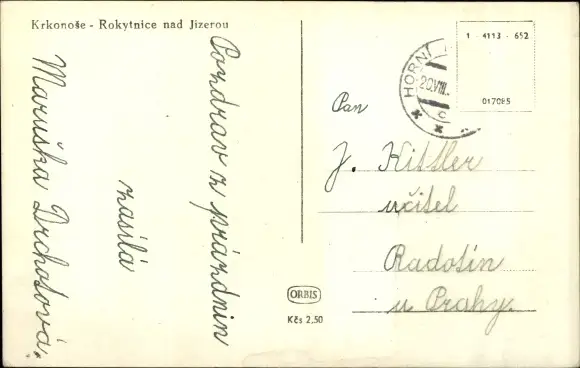 Krkonoše - Rokytnice nad Jizerou
Pozdrav z prázdnin
zasílá
Maruška Drchotová.
1 - 4113 - 652
017085
HORNÍ
20.VIII.
C
Pan
J. Kittler
učitel
Radotín
u Prahy.
ORBIS
Kčs 2,50